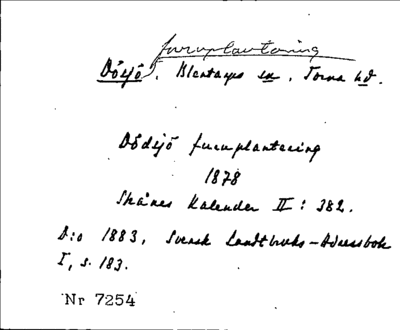 furuplantering
Dösjö, Blentarps sn, Torna hd.
Dödsjö furuplantering
1878
Skånes Kalender II: 382.
D:o 1883, Svensk Landtbruks-Adressbok
I, s. 183.
Nr 7254